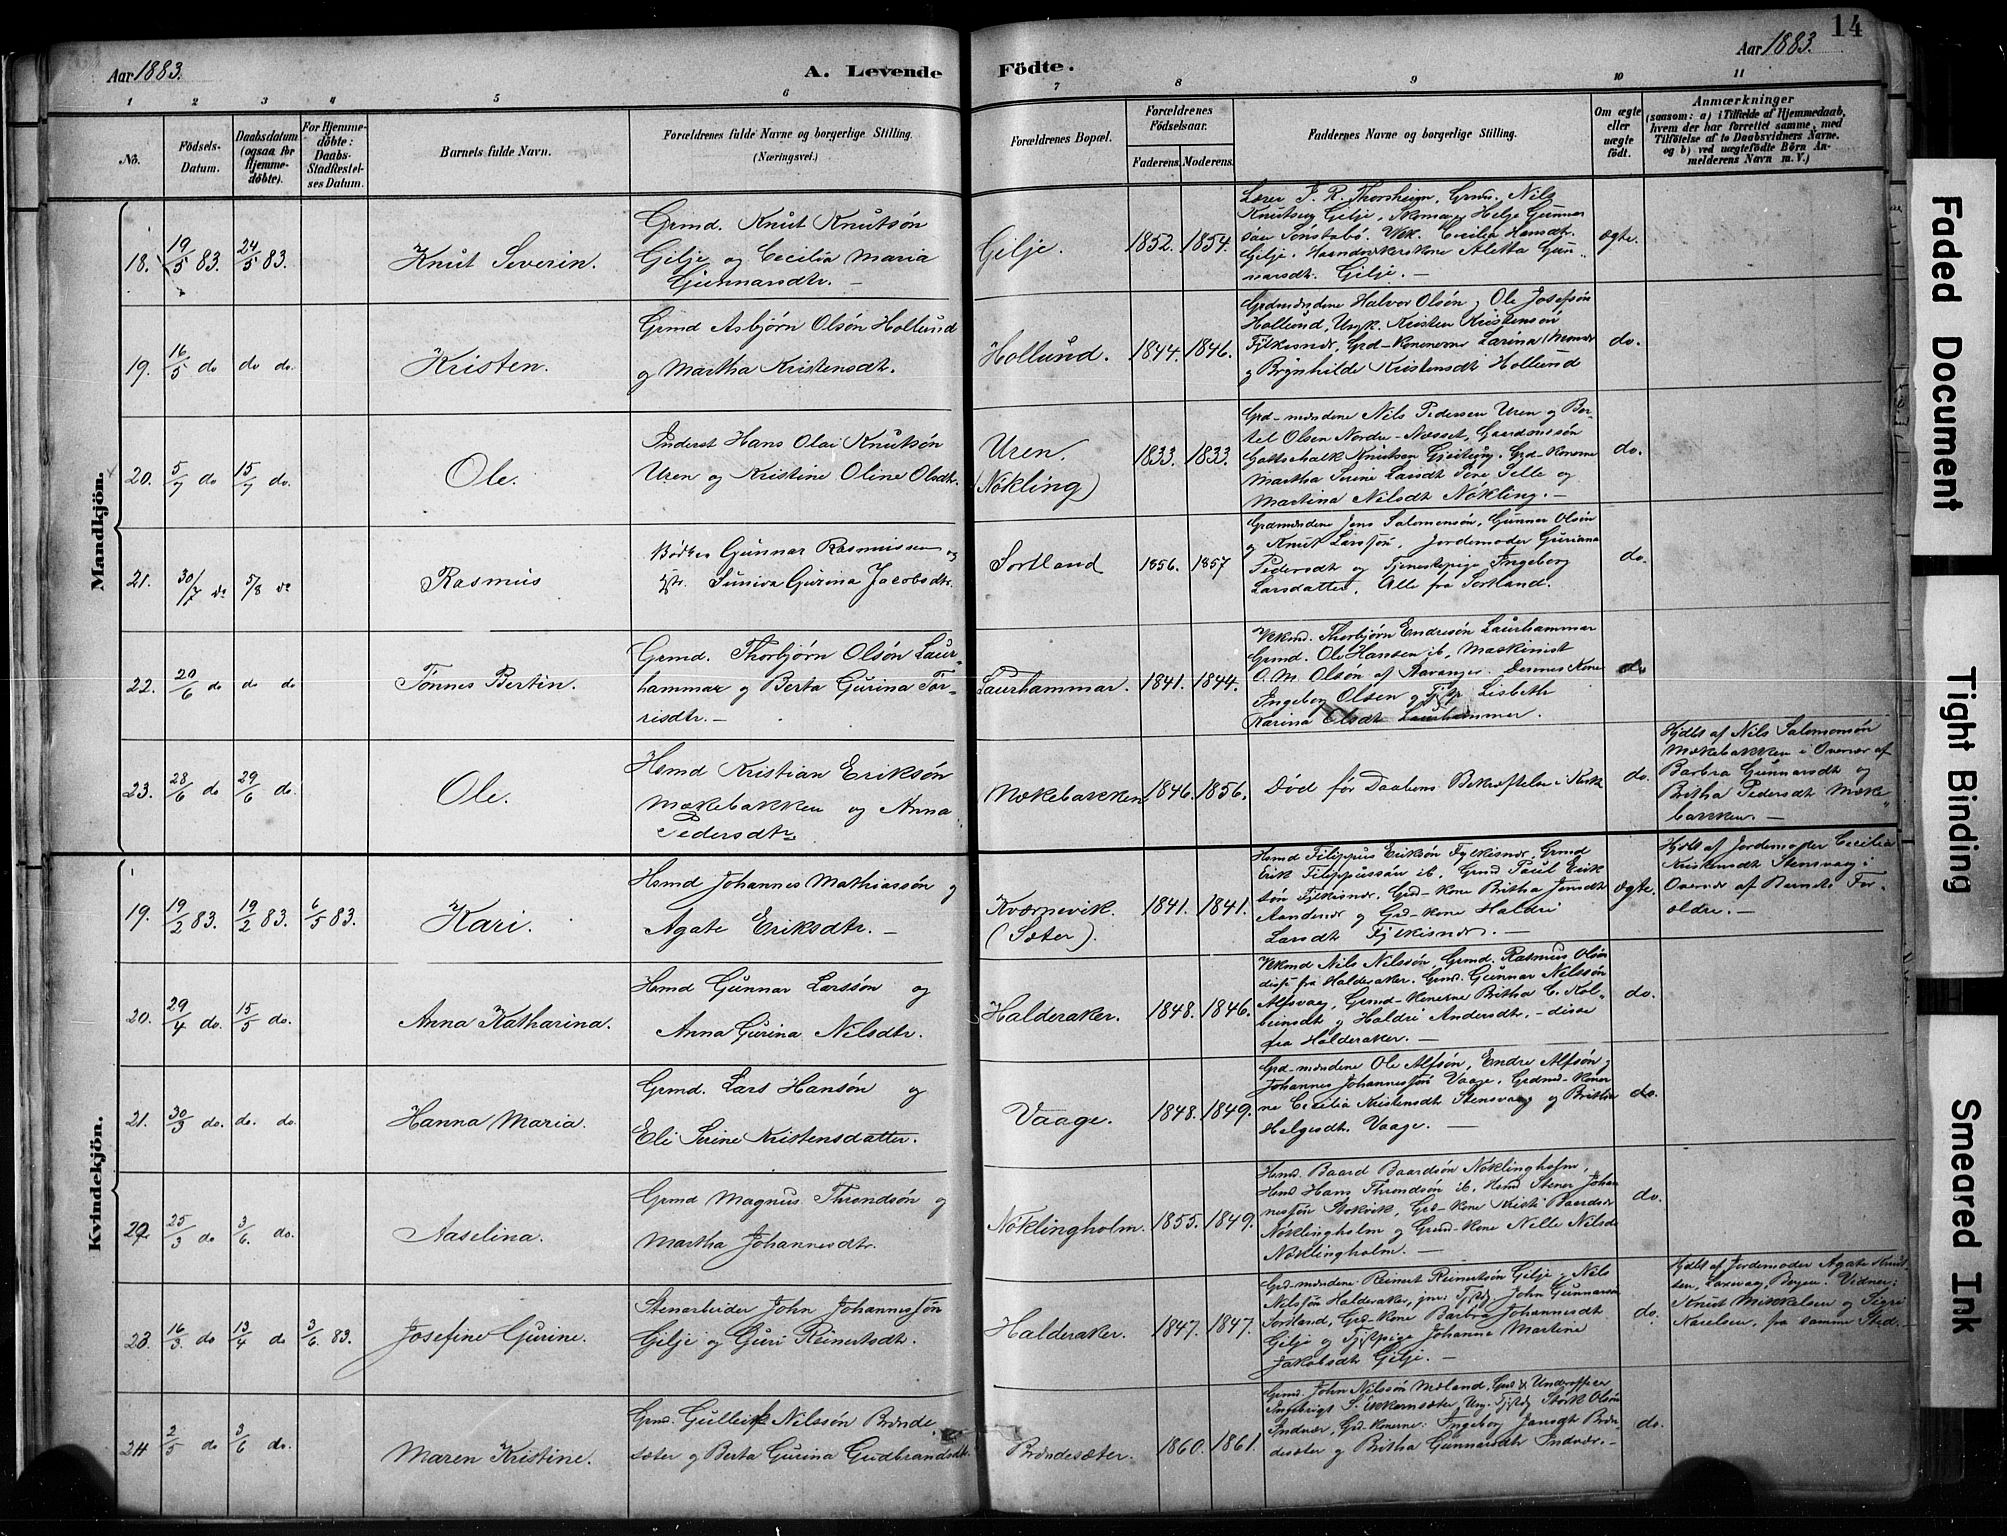 14
Aar 1883.
A. Levende
Födte.
Aar 1883.
1 2 3 4 5 6 7 8 9 10 11
No.
Födsels-Datum.
Daabsdatum (ogsaa for Hjemme-döbte).
For Hjemme-döbte: Daabs-Stadfæstel-ses Datum.
Barnets fulde Navn.
Forældrenes fulde Navne og borgerlige Stilling. (Næringsvei.)
Forældrenes Bopæl.
Forældrenes Födselsaar.
Faderens. Moderens.
Faddernes Navne og borgerlige Stilling.
Om ægte eller uægte födt.
Anmærkninger
(saasom: a) i Tilfælde af Hjemmedaab, hvem der har forrettet samme, med Tilföielse af to Daabsvidners Navne. og b) ved uægtefödte Börn An-melderens Navn m. V.)
Mandkjön.
18. 19/5 83. 24/5 83. Knut Severin.
Grmd. Knut Knutsön
Gilje og Cecilia Maria
Gunnarsdtr. —
Gilje. 1852. 1854.
Lærer J. R. Thorsheim, Grmd. Nils
Knutsen Gilje, Skomag. Helge Gunnar
søn Sönstabö. Cecilia Hansdt.
Gilje. Haandværkerskone Aletta Gun-
narsdt. Gilje. —
ægte.
19. 16/5 do do do. Kristen.
Grmd Asbjörn Olsön Hollund
og Martha Kristensdt.
Hollund. 1844. 1846.
Grdmændene Halvor Olsön, Ole Josefsön
Hollund, Ungk. Kristen Kristensön
Fylkesnæs, Grd-konerne Larina
og Brynhilde Kristensdt Hollund
do.
20. 5/7 do 15/7 do. Ole.
Inderst Hans Olai Knutsön
Uren og Kristine Oline Olsdtr.
Uren.
(Nökling) 1833. 1833.
Grd-mændene Nils Pedersen Uren og Ber-
tel Olsen Nordre-Næsset, Gaardmesön
Gottschalk Knutsen Gjeitung. Grd-konerne
Martha Serine Larsdt Selle og
Martina Nilsdt Nökling. —
do.
21. 30/7 do 5/8 do Rasmus
Bödker Gunnar Rasmussen og
Hst. Suniva Gurina Jacobsdtr.
Sortland 1856. 1857
Grdmændene Jens Salomonsön, Gunnar Olsön
og Knut Larssön, Jordemoder Guriana
Pedersdt og Tjenestepige Ingeborg
Larsdatter. Alle fra Sortland.
do.
22. 20/6 do do do Tönnes Bertin.
Grmd. Thorbjörn Olsön Laur-
hammar og Berta Gurina Tor-
risdtr. —
Laurhammar. 1841. 1844.
Vekmd. Thorbjörn Endresön Laurhammar
Grmd. Ole Hansen ib, Maskinist
O. M. Olsön af Stavanger. Dennes Kone
Ingeborg Olsen og Tjp. Lisbeth
Karina Olsdt Laurhammer.
do
23. 28/6 do 29/6 do. Ole.
Hsmd Kristian Eriksön
Mækebakken og Anna
Pedersdtr.
Mækebakken 1846. 1856.
Död før Daabens Bekræftelse i Kirk
do.
Hjdbt af Nils Salomonsön
Mækebakken i Overvær af
Barbra Gunnarsdt og
Britha Pedersdt Mæke-
bakken. —
Kvindekjön.
19. 19/2 83. 19/2 83. 6/5 83. Kari.
Hsmd Johannes Mathiassön og
Agate Eriksdtr. —
Kværnevik.
(Sæter). 1841. 1841.
Hsmd Filippus Eriksön Fylkesnæs, Grmd
Erik Filippussön ib, Grmd Paul Erik
sön Fylkesnæs, Grd-kone Britha Jensdt
Aandenæs og Grd-kone Haldri
Larsdt Fylkesnæs. —
ægte.
Hjdbt af Jordemoder Cecilia
Kristensdt Stensvaag i
Overvær af Barnets For-
ældre. —
20. 29/4 do. 15/5 do. Anna Katharina.
Hsmd Gunnar Larssön og
Anna Gurina Nilsdtr.
Halderaker. 1848. 1846.
Vekmd Nils Nilssön, Grmd. Rasmus Olsön
disse fra Halderaker. Grmd. Gunnar Nilssön
Alfsvaag, Grmd-konerne Britha C. Kol-
beinsdt og Haldri Andersdtr. – disse
fra Halderaker. —
do.
21. 30/3 do. do. do. Hanna Maria.
Grmd. Lars Hansön og
Eli Serine Kristensdatter.
Vaage. 1848. 1849.
Grd-mændene Ole Alfsön, Endre Alfsön og
Johannes Johannessön Vaage, Grdmd-koner
ne Cecilia Kristensdt Stensvaag og Britha
Helgesdt. Vaage. —
do.
22. 25/3 do 3/6. do. Aaselina.
Grmd Magnus Throndsön og
Martha Johannesdtr.
Nöklingholm. 1855. 1849.
Hsmd. Baard Baardsön Nöklingholm,
Hsmd Hans Throndsön ib, Hsmd Stener Johan
nessön Stokvik, Grd-kone Kristi Baardsdt
Nöklingholm og Grmd-kone Nille Nilsdt
Nöklingholm. —
do.
23. 16/3. do 13/4 do 3/6. 83. Josefine Gurine.
Stenarbeider John Johannessön
Gilje og Guri Reinertsdt.
Halderaker. 1847. 1847.
Grd-mændene Reinert Reinertsön Gilje, Nils
Nilssön Halderaker, jnr, Tjstdg John Gunnarsön
Sortland, Grd-kone Barbra Johannesdt
Gilje og Tjstpige Johanne Martine
Jakobsdt Gilje. —
do.
Hjdbt af Jordemoder Agate Knut-
sen, Laxevaag, Bergen. Vidner:
Knut Mikkelsen og Sigri
Karelsen, fra samme Sted. —
24. 2/5 do 3/6 do. Maren Kristine.
Grmd. Gulleik Nilssön Brænde-
sæter og Berta Gurina Gudbrandsdt.
Brændesæter. 1860. 1861.
Grmd. John Nilssön Mæland, Grd & Underofficer
Ingebrigt S. Uekkensæter, Ung. Tjstdg Störk Olsön
Indvær, Grd-konerne: Ingeborg Jansdt Bræn-
desæter og Britha Gunnarsdt Indvær. —
do.
Faded Document
Tight Binding
Smeared Ink